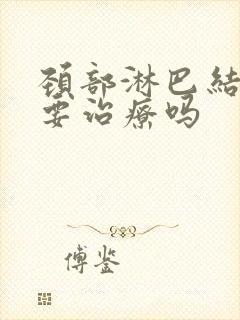 颈部淋巴結
要治療吗
傅鉴